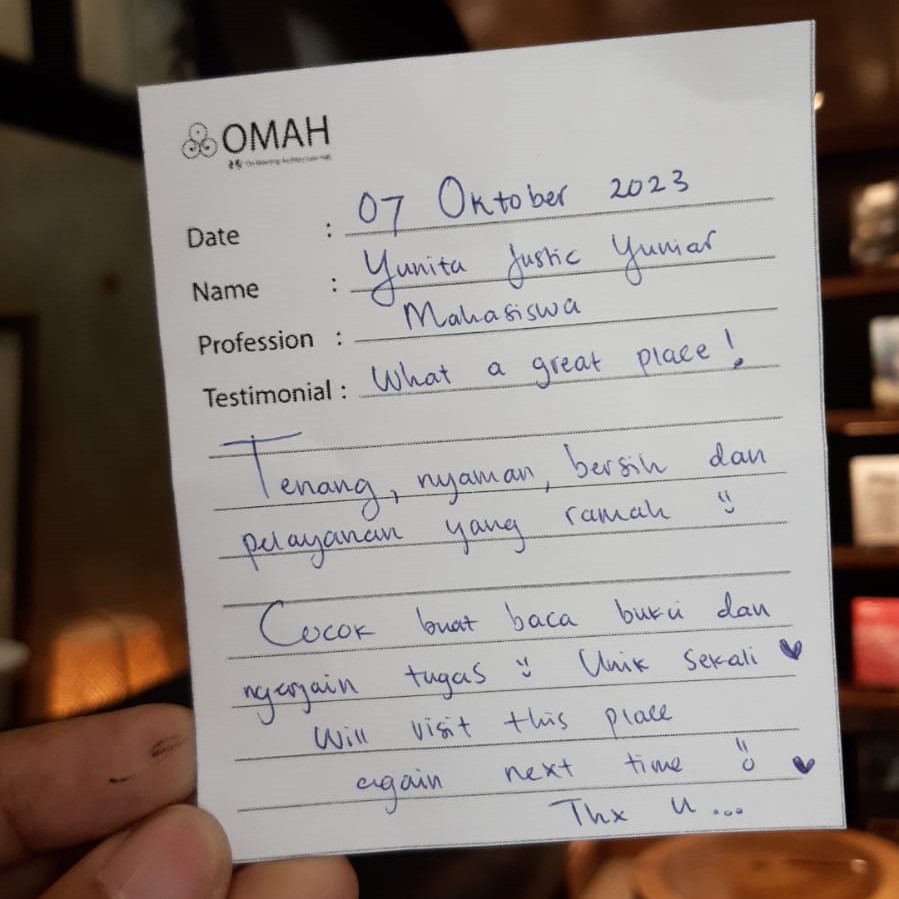 OMAH
Date : 07 Oktober 2023
Name : Yunita Justic Yuniar
Profession : Mahasiswa
Testimonial : What a great place!
Tenang, nyaman, bersih dan
pelayanan yang ramah
Cocok buat baca buku dan
ngerjain tugas Unik sekali
Will visit this place
again next time
Thx U...